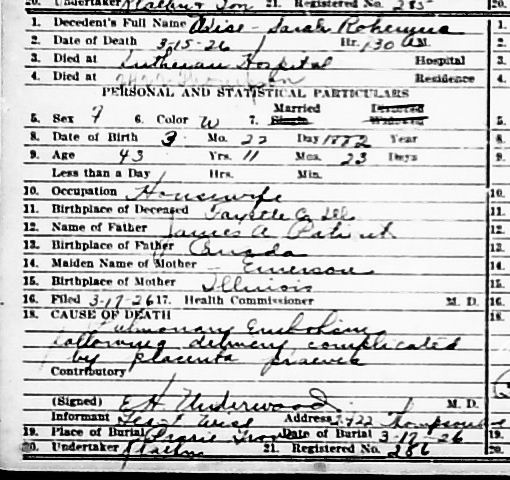 20. Undertaker & Son 21. Registered No. 285 20.
1. Decedent's Full Name Wise - Sarah Rohemma 1.
2. Date of Death 3-15-26 Hr. 130 A.M. 2.
3. Died at Lutheran Hospital Hospital 3.
4. Died at Residence 4.
PERSONAL AND STATISTICAL PARTICULARS
Married Divorced
5. Sex F 6. Color W 7. Single Widowed 5.
8. Date of Birth 3 Mo. 22 Day 1882 Year 8.
9. Age 43 Yrs. 11 Mos. 23 Days 9.
Less than a Day Hrs. Min.
10. Occupation Housewife 10.
11. Birthplace of Deceased Fayette Co Ill 11.
12. Name of Father James A 12.
13. Birthplace of Father Canada 13.
14. Maiden Name of Mother Emerson 14.
15. Birthplace of Mother Illinois 15.
16. Filed 3-17-26 17. Health Commissioner M. D. 16.
18. CAUSE OF DEATH 18.
Pulmonary Embolism
following delivery complicated
by placenta praevia
Contributory
(Signed) E H Underwood M. D.
Informant Wise Address 2422 Thompson
19. Place of Burial Prairie Grove Date of Burial 3-17-26 19.
20. Undertaker 21. Registered No. 286 20.